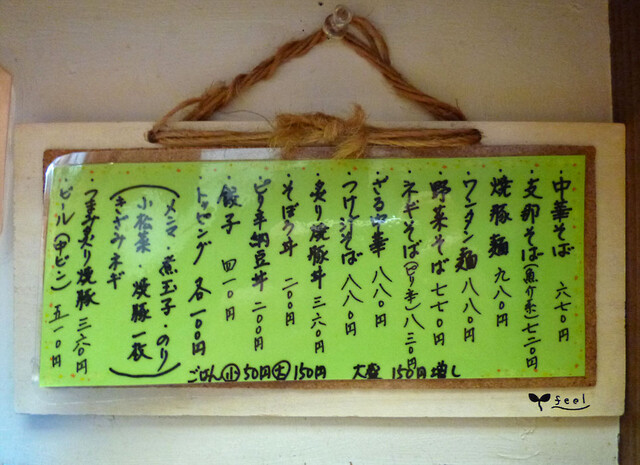 ・中華そば 六七〇円
・支那そば(魚介系)七二〇円
・焼豚麺 九八〇円
・ワンタン麺 八八〇円
・野菜そば 七七〇円
・ネギそば(ピリ辛)八三〇円
・ざる中華 八八〇円
・つけそば 八八〇円
・炙り焼豚丼 三六〇円
・そぼろ丼 二〇〇円
・ピリ辛納豆丼 二〇〇円
・餃子 四一〇円
・トッピング 各一〇〇円
(メンマ・煮玉子・のり
小松菜 焼豚一枚
きざみネギ)
・つまみ炙り焼豚 三六〇円
・ビール(中ビン) 五一〇円
ごはん(小)50円(大)150円 大盛 150円増し
feel